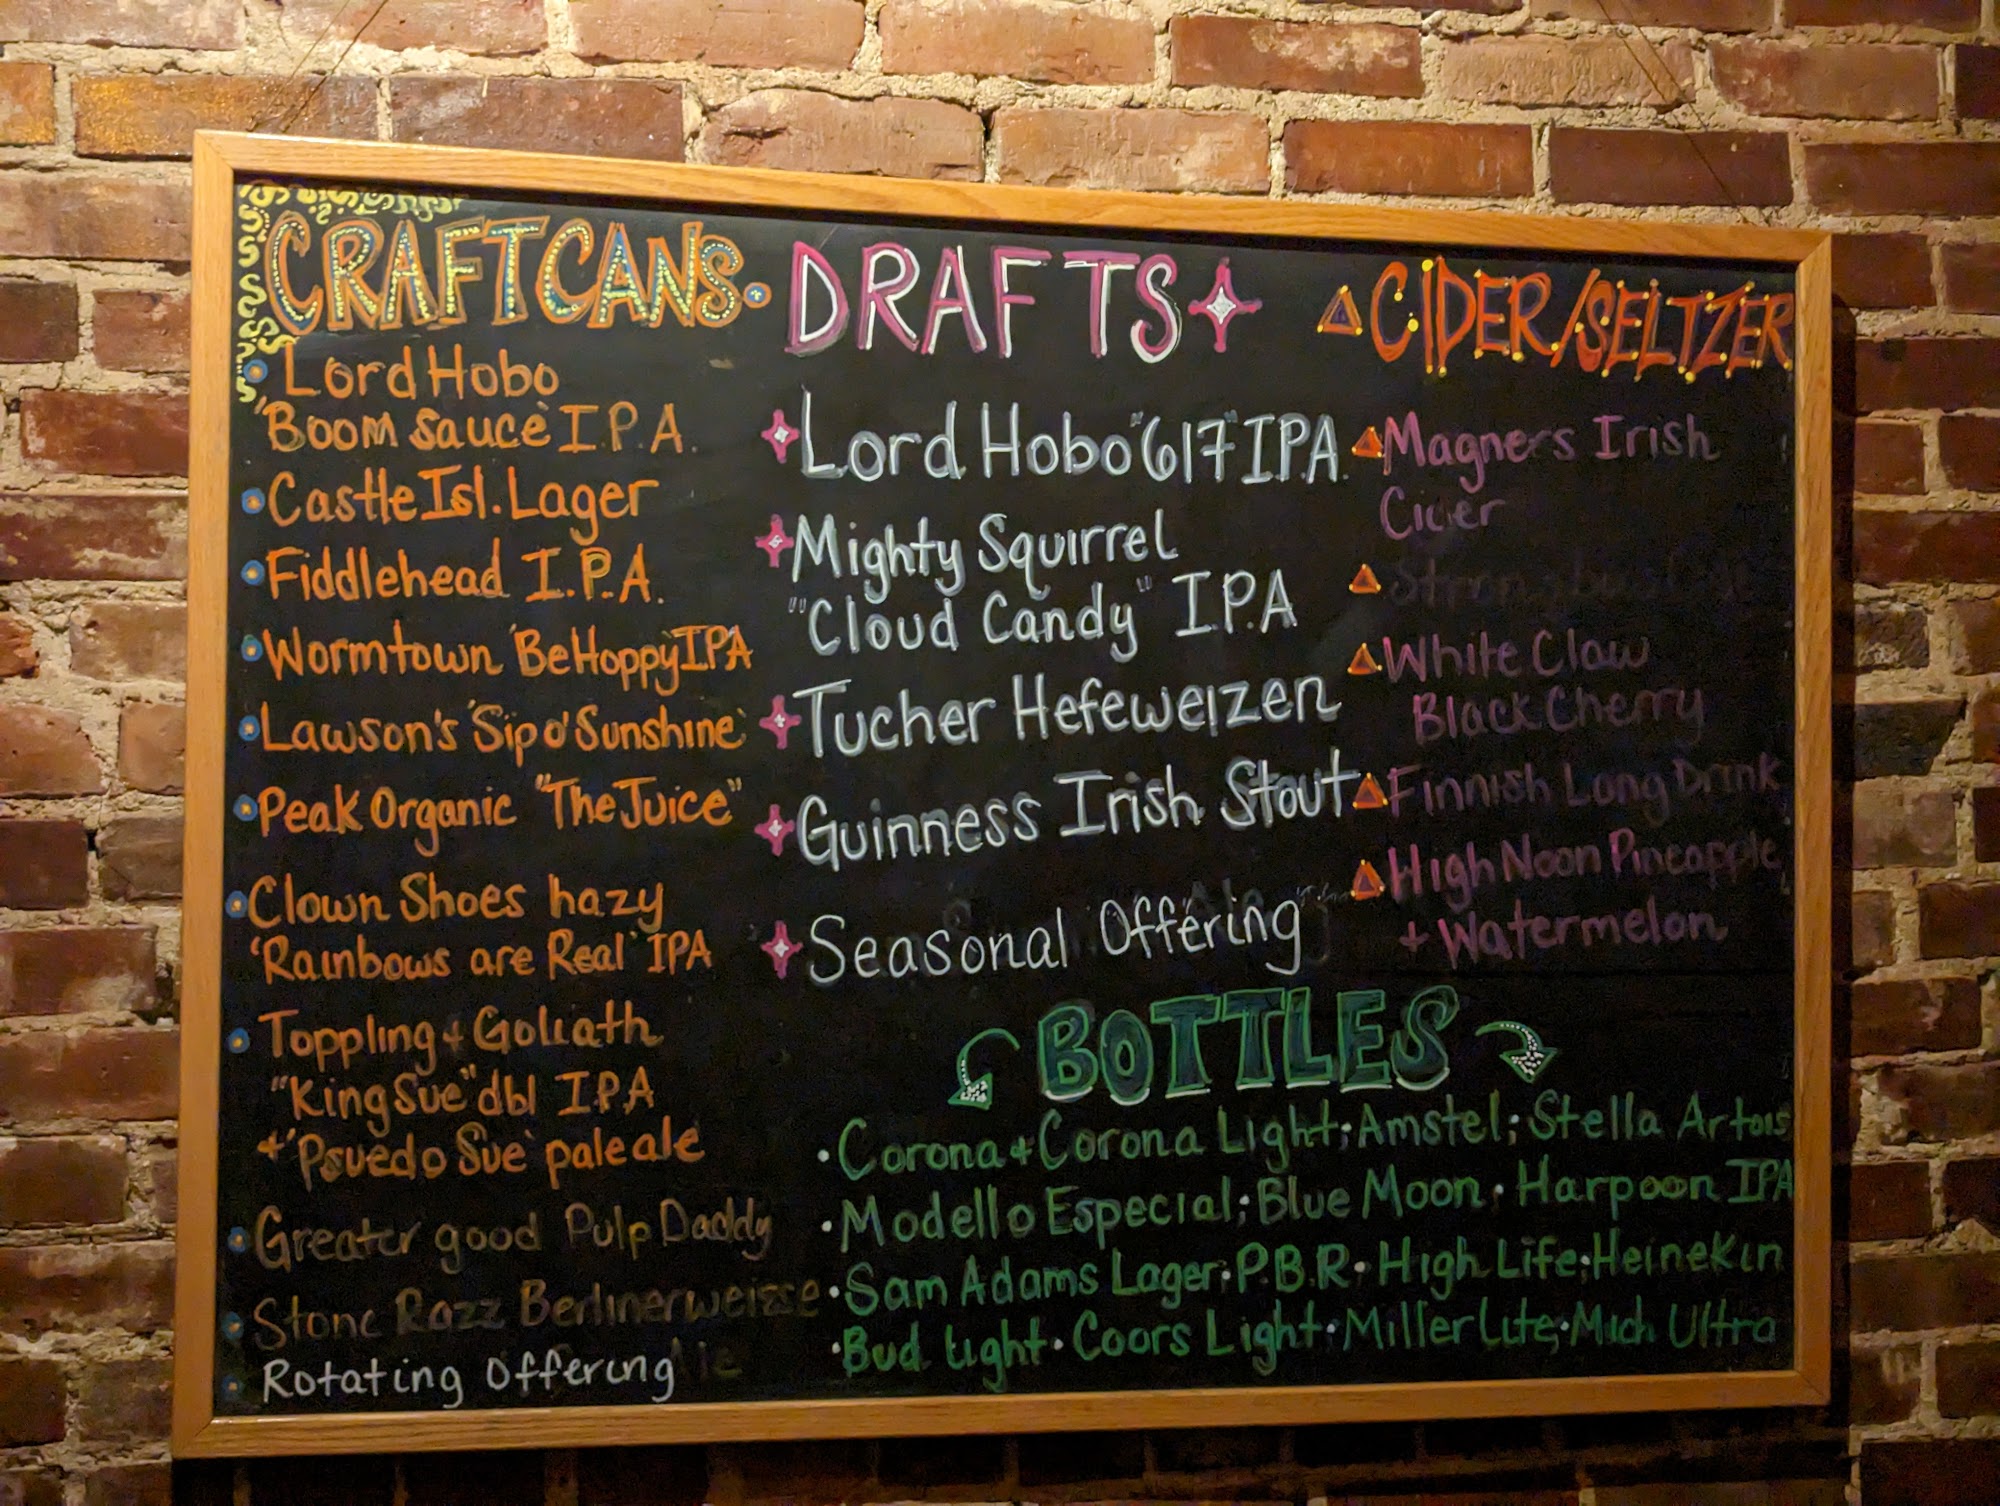 CRAFT CANS
Lord Hobo
"Boom Sauce" I.P.A.
Castle Isl. Lager
Fiddlehead I.P.A.
Wormtown 'BeHoppy' IPA
Lawson's 'Sip o' Sunshine'
Peak Organic "The Juice"
Clown Shoes hazy
'Rainbows are Real' IPA
Toppling + Goliath
"King Sue" dbl I.P.A
+ 'Psuedo Sue' pale ale
Greater good Pulp Daddy
Stone Razz Berlinerweisse
Rotating Offering
DRAFTS
Lord Hobo "617" I.P.A.
Mighty Squirrel
"Cloud Candy" I.P.A
Tucher Hefeweizen
Guinness Irish Stout
Seasonal Offering
CIDER/SELTZER
Magners Irish
Cider
White Claw
Black Cherry
Finnish Long Drink
High Noon Pineapple
+ Watermelon
BOTTLES
• Corona + Corona Light; Amstel; Stella Artois
• Modello Especial; Blue Moon • Harpoon IPA
• Sam Adams Lager • P.B.R • High Life • Heinekin
• Bud Light • Coors Light • Miller Lite • Mich Ultra